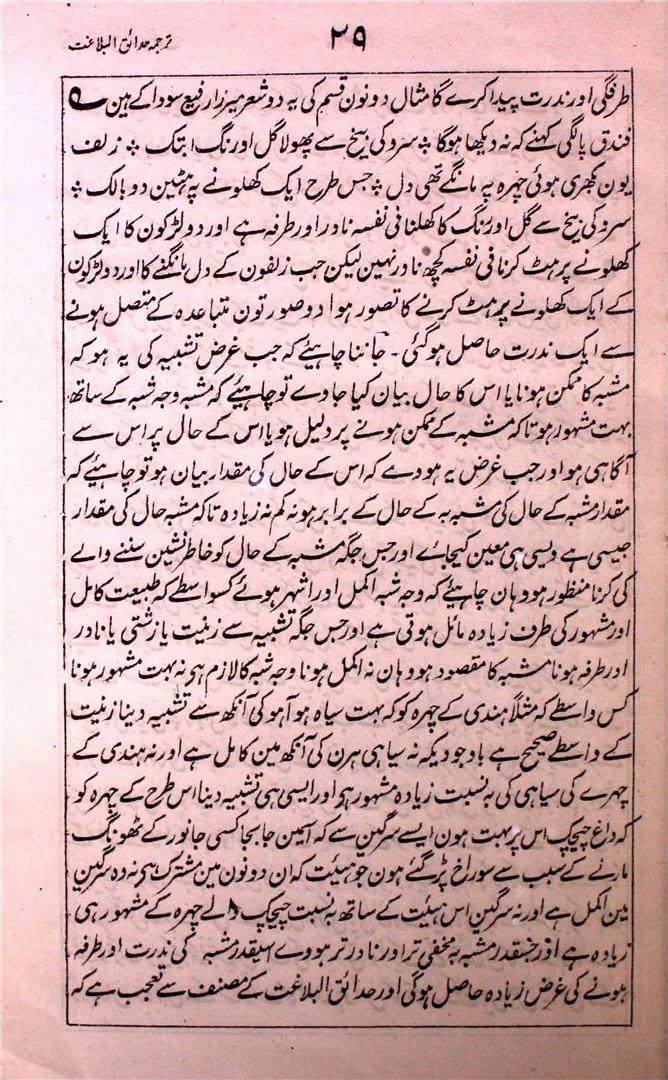 ترجمہ حدائق البلاغت
۲۹
طرفگی اور ندرت پیدا کرے گا مثال دونون قسم کی یہ دو شعر میرزا رفیع سودا کے ہین
فندق پا لگی کہنے کہ نہ دیکھا ہوگا ؞ سرو کی بیخ سے پھولا گل اورنگ ابتک ؞ زلف
یون بکھری ہوئی چہرہ پہ مانگے تھی دل ؞ جس طرح ایک کھلونے پہ ہٹین دو بالک ؞
سرو کی بیخ سے گل اورنگ کا کھلنا فی نفسہ نادر اور طرفہ ہے اور دو لڑکون کا ایک
کھلونے پر ہٹ کرنا فی نفسہ کچھ نادر نہین لیکن جب زلفون کے دل مانگنے کا اور دو لڑکون
کے ایک کھلونے پر ہٹ کرنے کا تصور ہوا دو صورتون متباعدہ کے متصل ہونے
سے ایک ندرت حاصل ہوگئی ۔ جاننا چاہیئے کہ جب غرض تشبیہ کی یہ ہو کہ
مشبہ کا ممکن ہونا یا اس کا حال بیان کیا جاوے تو چاہیئے کہ مشبہ وجہ شبہ کے ساتھ
بہت مشہور ہو تاکہ مشبہ کے ممکن ہونے پر دلیل ہو یا اس کے حال پر اس سے
آگاہی ہو اور جب غرض یہ ہووے کہ اس کے حال کی مقدار بیان ہو تو چاہیئے کہ
مقدار مشبہ کے حال کی مشبہ بہ کے حال کے برابر ہو نہ کم نہ زیادہ تاکہ مشبہ حال کی مقدار
جیسی ہے ویسی ہی معین کیجائے اور جس جگہ مشبہ کے حال کو خاطر نشین سننے والے
کی کرنا منظور ہو وہان چاہیئے کہ وجہ شبہ اکمل اور اشہر ہوئے کسواسطے کہ طبیعت کامل
اور مشہور کی طرف زیادہ مائل ہوتی ہے اور جس جگہ تشبیہ سے زینت یا زشتی یا نادر
اور طرفہ ہونا مشبہ کا مقصود ہو وہان نہ اکمل ہونا وجہ شبہ کا لازم ہی نہ بہت مشہور ہونا
کس واسطے کہ مثلاً ہندی کے چہرہ کو کہ بہت سیاہ ہو آہو کی آنکھ سے تشبیہ دینا زینت
کے واسطے صحیح ہے باوجودیکہ نہ سیاہی ہرن کی آنکھ مین کامل ہے اور نہ ہندی کے
چہرے کی سیاہی کی بہ نسبت زیادہ مشہور ہی اور ایسی ہی تشبیہ دینا اس طرح کے چہرہ کو
کہ داغ چیچک اس پر بہت ہون ایسے سرگین سے کہ اسمین جابجا کسی جانور کے ٹھونگ
مارنے کے سبب سے سوراخ پڑ گئے ہون جو ہیئت کہ ان دونون مین مشترک ہی نہ وہ سرگین
مین اکمل ہے اور نہ سرگین اس ہیئت کے ساتھ بہ نسبت چیچک والے چہرہ کے مشہور ہی
زیادہ ہے اور جسقدر مشبہ بہ مخفی تر اور نادر تر ہووے اسیقدر مشبہ کی ندرت اور طرفہ
ہونے کی غرض زیادہ حاصل ہوگی اور حدائق البلاغت کے مصنف سے تعجب ہے کہ